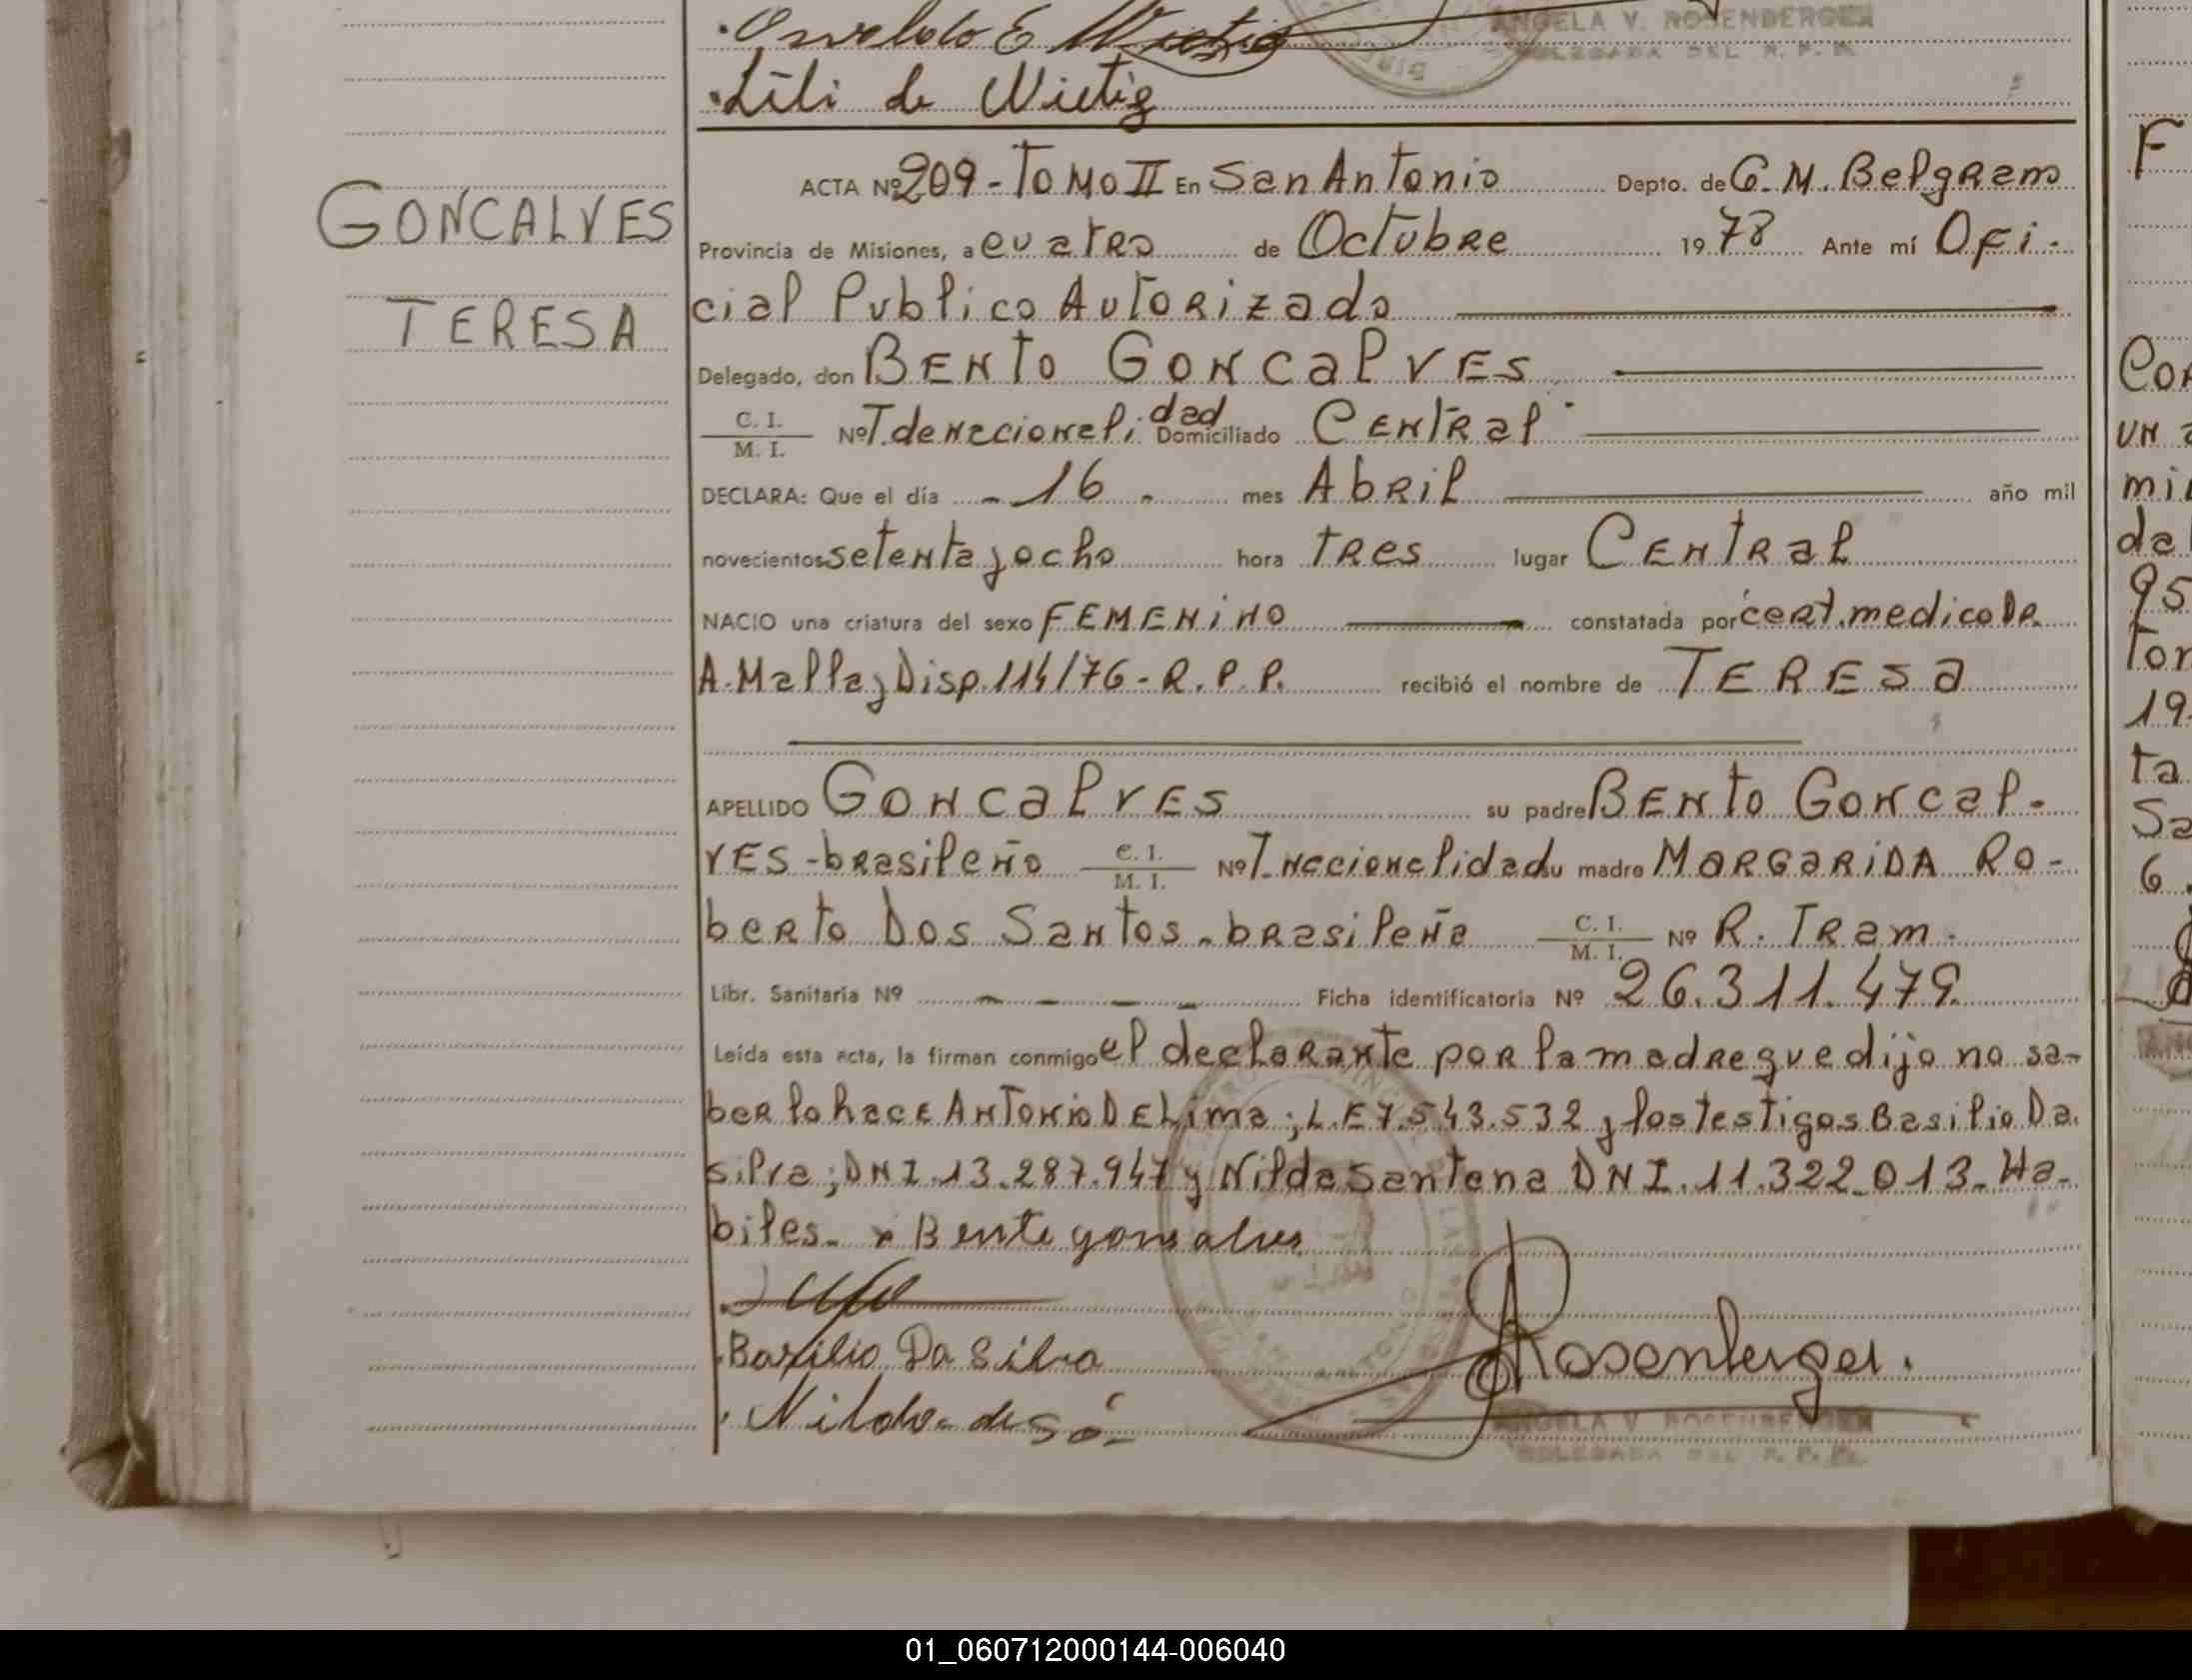 Osvaldo E Wietig
ANGELA V. ROSENBERGER
DELEGADA DEL R. P. P.
Lili de Wietig
GONCALVES
TERESA
ACTA Nº 209 - TOMO II En San Antonio Depto. de G. M. Belgrano
Provincia de Misiones, a cuatro de Octubre 19 78 Ante mí Ofi-
cial Publico Autorizado
Delegado, don BENTO GONCALVES
C. I. / M. I. Nº T. de nacionalidad Domiciliado CENTRAL
DECLARA: Que el día - 16 - mes Abril año mil
novecientos setenta y ocho hora tres lugar CENTRAL
NACIO una criatura del sexo FEMENINO constatada por cert. medico DR.
A. Malla y Disp. 114/76 - R. P. P. recibió el nombre de TERESA
APELLIDO GONCALVES su padre BENTO GONCAL-
VES - brasileño C. I. / M. I. Nº T. nacionalidad su madre MARGARIDA RO-
berto Dos Santos - brasileña C. I. / M. I. Nº R. Tram.
Libr. Sanitaria Nº - - - - Ficha identificatoria Nº 26.311.479
Leída esta acta, la firman conmigo el declarante por la madre que dijo no sa-
ber lo hace ANTONIO DE Lima; L.E 7.543.532 y los testigos Basilio Da
silva; DNI. 13.287.947 y Nilda Santana DNI. 11.322.013 - Ha-
biles. x Bento gonsalves
Basilio Da Silva
Rosenberger.
Nilda de Sá
ANGELA V. ROSENBERGER
DELEGADA DEL R. P. P.
F
Con
UN a
mi
de
95
Tor
19
Ta
Sa
6.
01_060712000144-006040